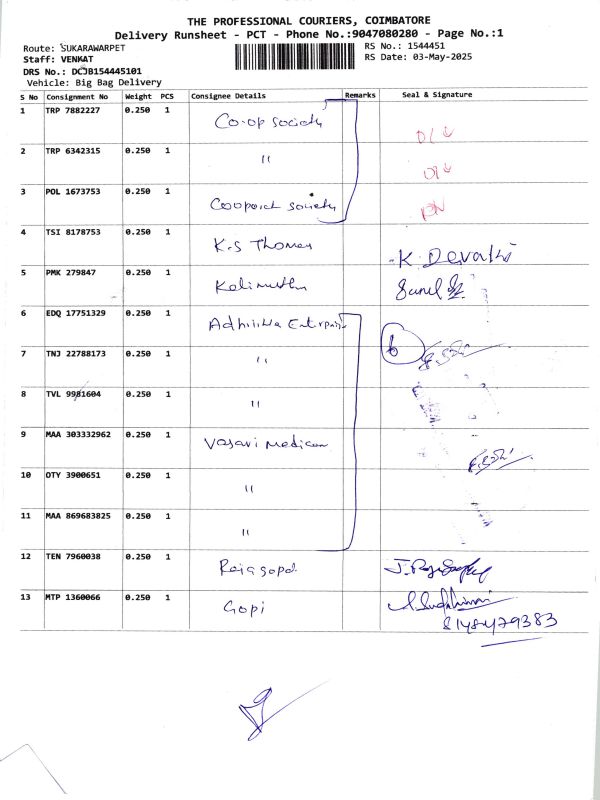 THE PROFESSIONAL COURIERS, COIMBATORE
Delivery Runsheet - PCT - Phone No.:9047080280 - Page No.:1
Route: SUKARAWARPET
RS No.: 1544451
Staff: VENKAT
RS Date: 03-May-2025
DRS No.: DCJB154445101
Vehicle: Big Bag Delivery
S No Consignment No Weight PCS Consignee Details Remarks Seal & Signature
1 TRP 7882227 0.250 1 Co-op society
2 TRP 6342315 0.250 1 "
3 POL 1673753 0.250 1 society
4 TSI 8178753 0.250 1 K.S Thomas K. Devaki
5 PMK 279847 0.250 1 Kalimuthu
6 EDQ 17751329 0.250 1 6
7 TNJ 22788173 0.250 1 "
8 TVL 9981604 0.250 1 "
9 MAA 303332962 0.250 1 Vasavi
10 OTY 3900651 0.250 1 "
11 MAA 869683825 0.250 1 "
12 TEN 7960038 0.250 1 Rajagopal
13 MTP 1360066 0.250 1 Gopi
8148479383